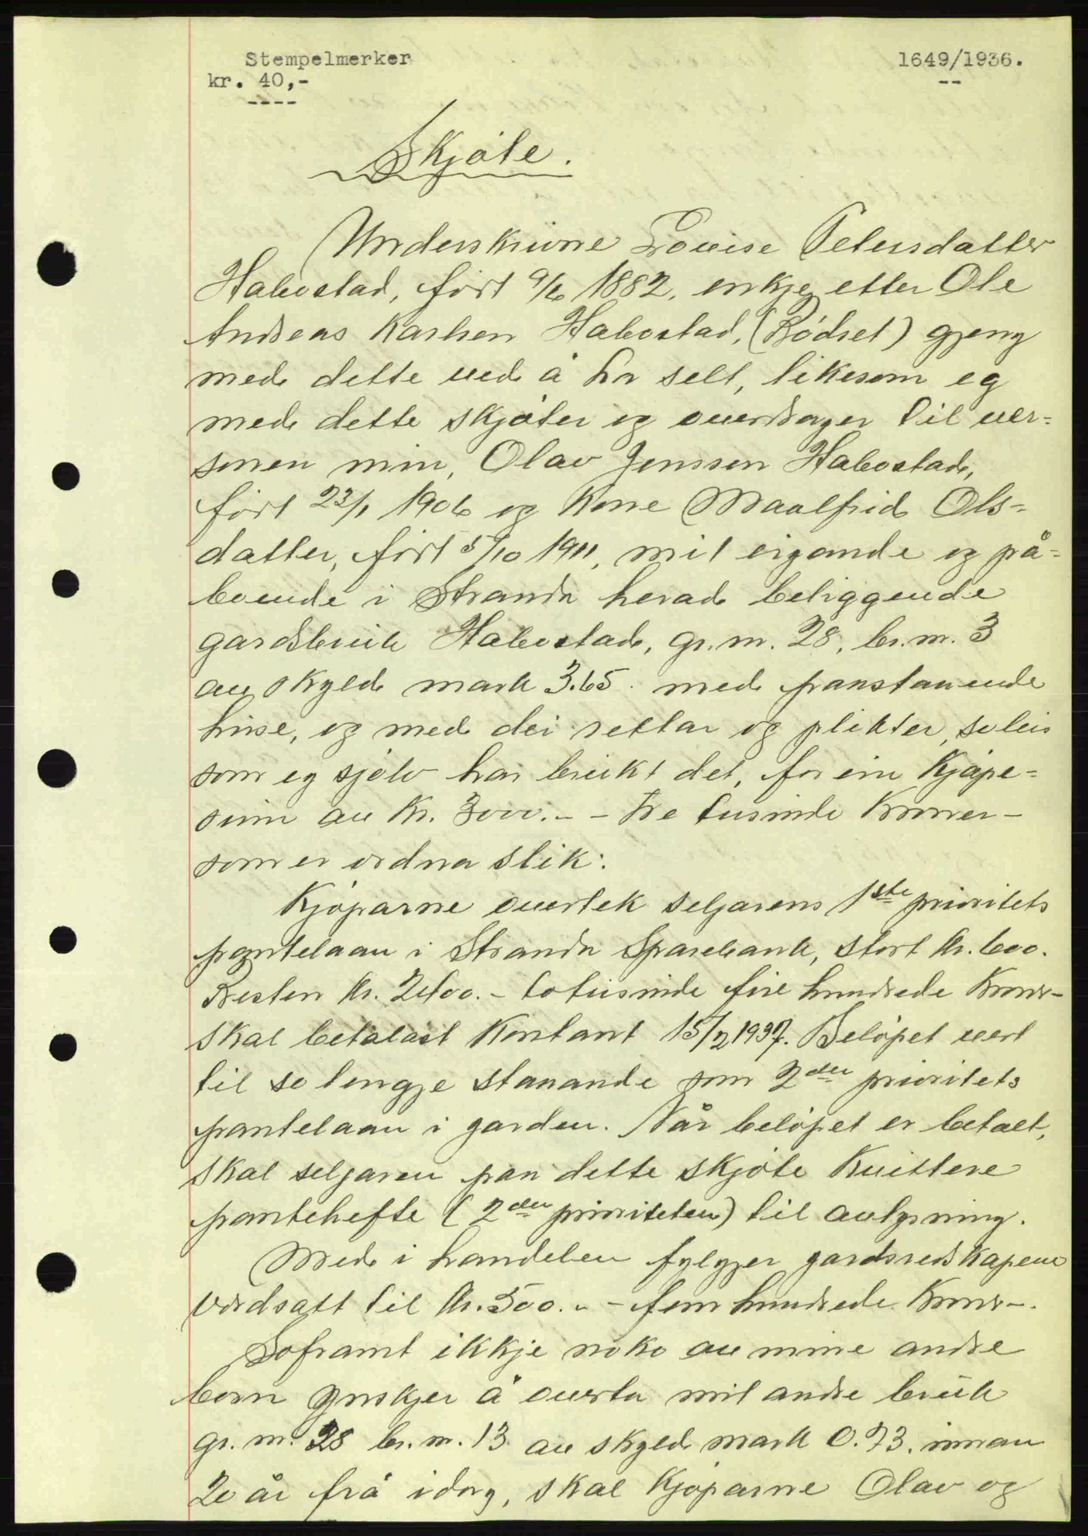 Stempelmerker
kr. 40,-
----
1649/1936.
--
Skjøte.
Underskrivne Lovise Petersdatter
Habostad, født 9/6 1882, enkje etter Ole
Andreas Karlsen Habostad, (Rødset) gjeng
med dette ved å ha selt, likesom eg
med dette skjøter og overdrager til ver-
sonen min, Olav Jenssen Habostad,
født 23/1 1906 og kone Maalfrid Ols-
datter, født 5/10 1911, mit eigande og på-
boende i Stranda herad beliggende
gardsbruk Habostad, gr. nr. 28, br. nr. 3
av skyld mark 3.65. med paastaaende
huse, og med dei rettar og plikter, soleis
som eg sjølv har brukt det, for ein kjøpe-
sum av kr. 3000.- - Tre tusinde kroner -
som er ordna slik:
Kjøparne overtek seljarens 1ste prioritets
pantelaan i Stranda Sparebank, stort kr. 600.
Resten kr. 2400.- totusinde fire hundrede kroner-
skal betalast kontant 15/2 1937. Beløpet vert
til so lengje staaande som 2den prioritets
pantelaan i garden. Når beløpet er betalt,
skal seljaren paa dette skjøte kvittere
pantehefte (2den prioriteten) til avlysning.
Med i handelen fylgjer gardsredskapene
verdsatt til kr. 500.- - fem hundrede kroner-.
Soframt ikkje noko av mine andre
born ynskjer å overta mit andre bruk
gr. nr. 28 br. nr. 13 av skyld mark 0.73. innan
20 år frå idag, skal kjøparne Olav og